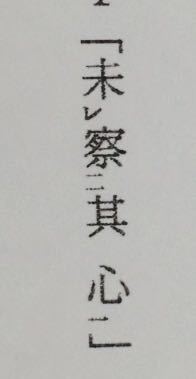 「未レ察二其心一」